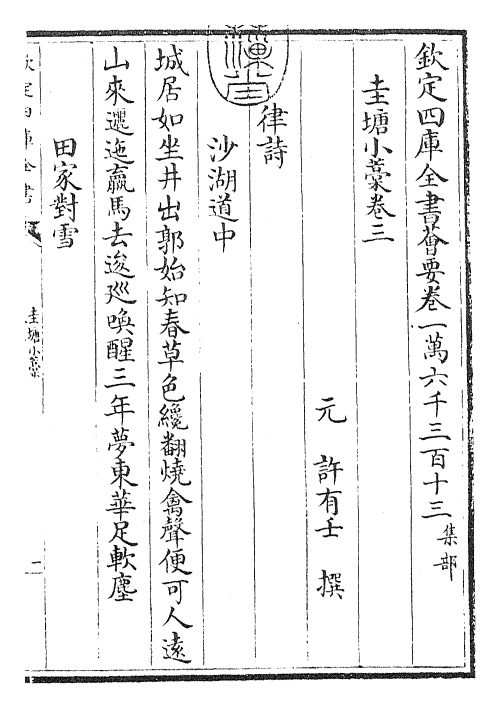 欽定四庫全書薈要卷一萬六千三百十三集部
圭塘小藁卷三
元 許有壬 撰
律詩
沙湖道中
城居如坐井出郭始知春草色纔翻燒禽聲便可人遠
山來邐迤羸馬去逡廵喚醒三年夢東華足軟塵
田家對雪
欽定四庫全書
圭塘小藁